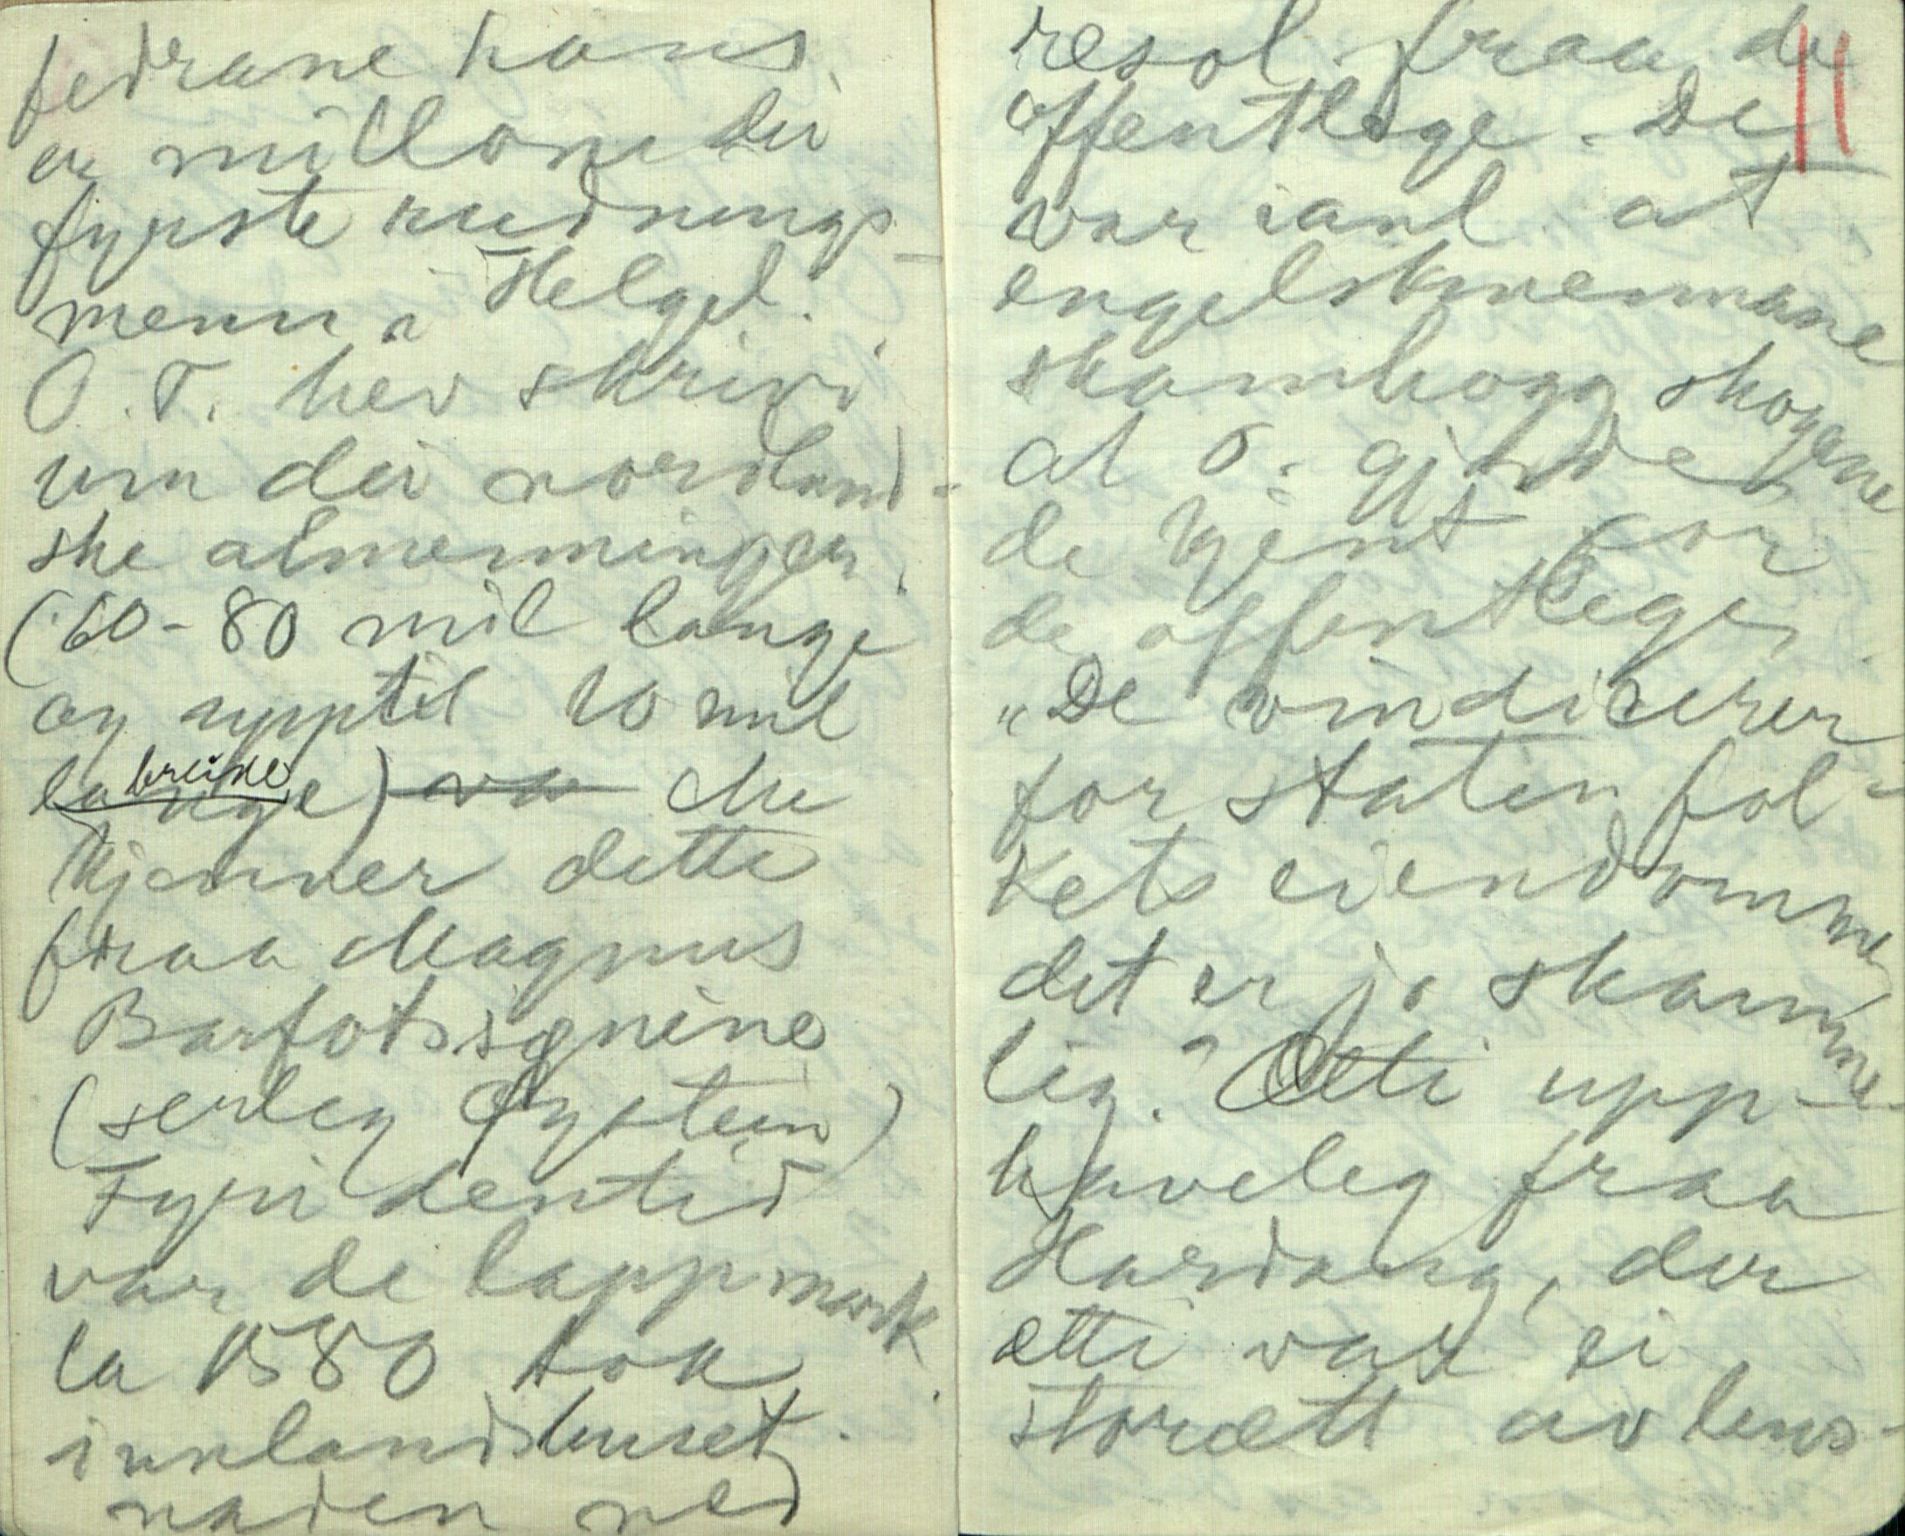 fedrane hans
er millom dei
fyrste rudnings-
menn i Helgel.
O. T. hev skrivi
um dei nordland-
ske almenningar
(60-80 mil lange
og upptil 10 mil
lange breide) va Me
kjenner dette
fraa Magnus
Barfotssynine
(serleg Øystein)
Fyri dentid
var de lappmark
ca 1580 tok
innlandsbuset
naden ned
resol. fraa de
offentlege. De 11
var ianl. at
engelskmennane
skamhogg skogane
at O. gjorde
de kjent for
de offentlege.
"De vindicerer
for staten fol-
kets eiendomme
det er jo skamme-
lig." Ætti upp-
haveleg fraa
Hardang, der
ætti var ei
storætt av lens-